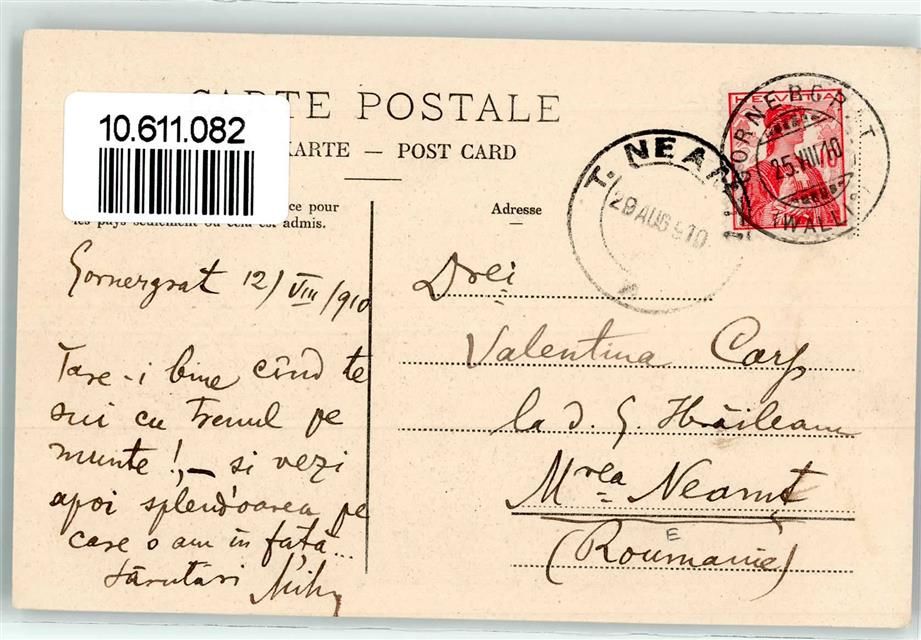 CARTE POSTALE
10.611.082
KARTE — POST CARD
ce pour
les pays seulement où cela est admis.
Adresse
HELVETIA
GORNERGRAT
25.VIII.10
(WALLIS)
T. NEAMȚ
29 AUG 910
Gornergrat 12/VIII/910
Tare-i bine cînd te
sui cu trenul pe
munte!, — si vezi
apoi splendoarea pe
care o am în fată...
Sărutări Mihy
Drei
Valentina Carp
la d. G. Hrăileanu
Mrea Neamț
(Roumanie)
E